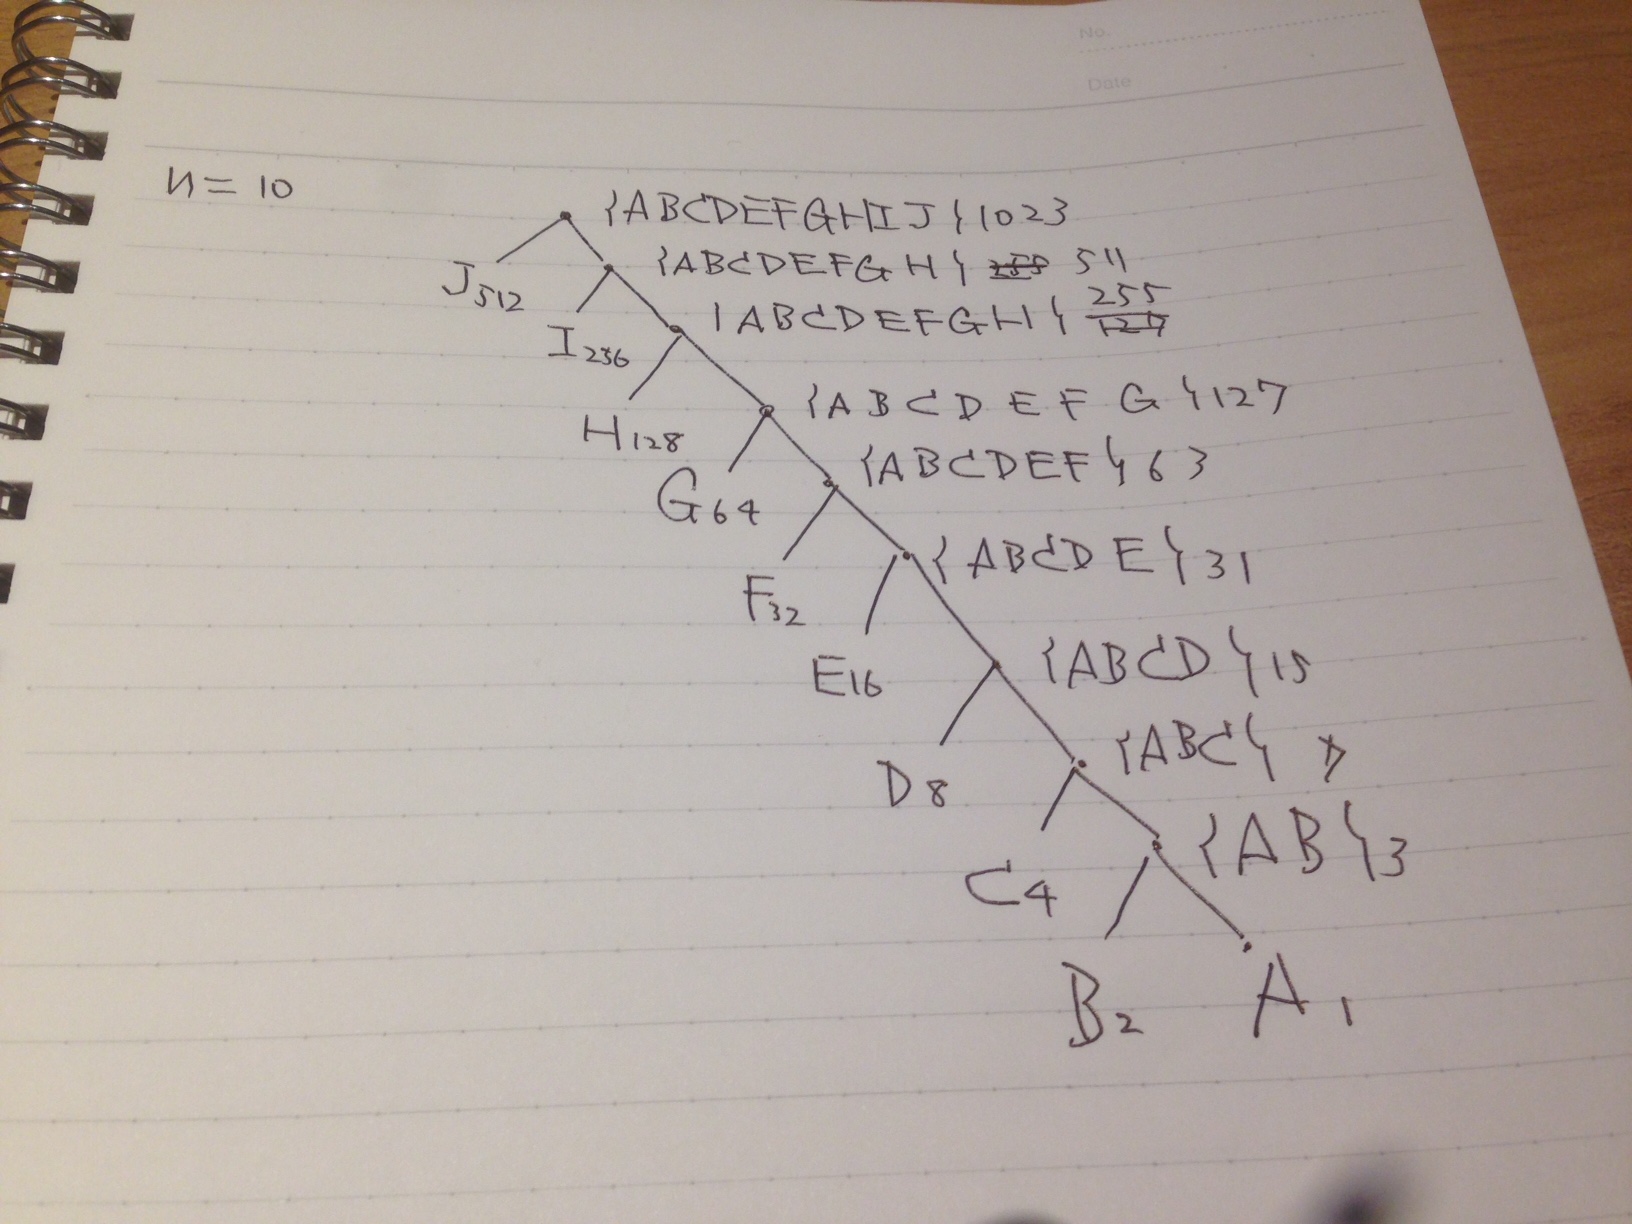 No.
Date
n = 10
{ABCDEFGHIJ} 1023
J512
{ABCDEFGH} 511
I256
{ABCDEFGH} 255
127
H128
{ABCDEFG} 127
G64
{ABCDEF} 63
F32
{ABCDE} 31
E16
{ABCD} 15
D8
{ABC} 7
C4
{AB} 3
B2
A1